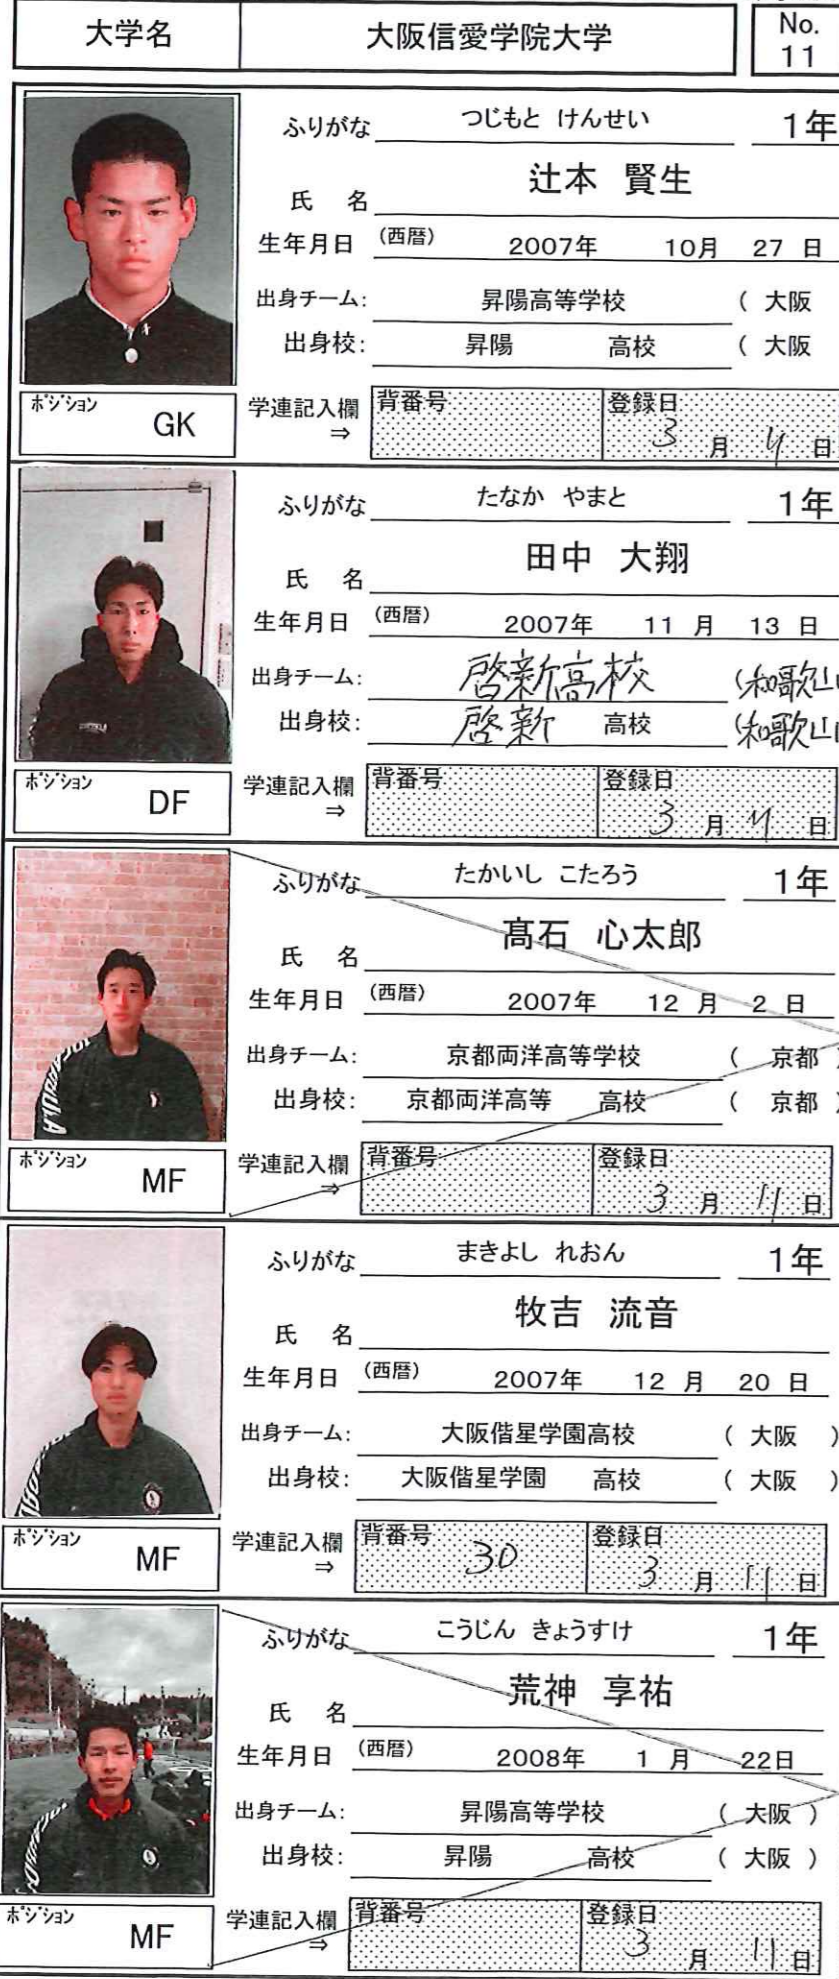 大学名 大阪信愛学院大学 No. 11
ふりがな つじもと けんせい 1年
氏 名 辻本 賢生
生年月日 (西暦) 2007年 10月 27 日
出身チーム: 昇陽高等学校 ( 大阪
出身校: 昇陽 高校 ( 大阪
ポジション GK 学連記入欄 ⇒ 背番号 登録日 3 月 日
ふりがな たなか やまと 1年
氏 名 田中 大翔
生年月日 (西暦) 2007年 11 月 13 日
出身チーム: 啓新高校 (和歌山
出身校: 啓新 高校 (和歌山
ポジション DF 学連記入欄 ⇒ 背番号 登録日 3 月 日
ふりがな たかいし こたろう 1年
氏 名 髙石 心太郎
生年月日 (西暦) 2007年 12 月 2 日
出身チーム: 京都両洋高等学校 ( 京都 )
出身校: 京都両洋高等 高校 ( 京都 )
ポジション MF 学連記入欄 ⇒ 背番号 登録日 3 月 11 日
ふりがな まきよし れおん 1年
氏 名 牧吉 流音
生年月日 (西暦) 2007年 12 月 20 日
出身チーム: 大阪偕星学園高校 ( 大阪 )
出身校: 大阪偕星学園 高校 ( 大阪 )
ポジション MF 学連記入欄 ⇒ 背番号 30 登録日 3 月 11 日
ふりがな こうじん きょうすけ 1年
氏 名 荒神 享祐
生年月日 (西暦) 2008年 1 月 22日
出身チーム: 昇陽高等学校 ( 大阪 )
出身校: 昇陽 高校 ( 大阪 )
ポジション MF 学連記入欄 ⇒ 背番号 登録日 3 月 11 日